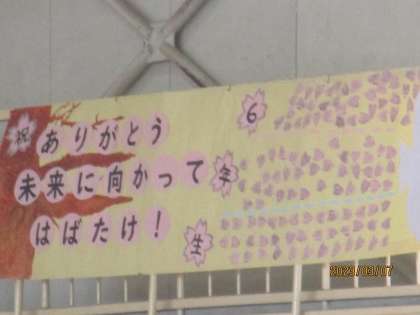 祝
ありがとう
未来に向かって
はばたけ!
6
年
生
2023/03/07